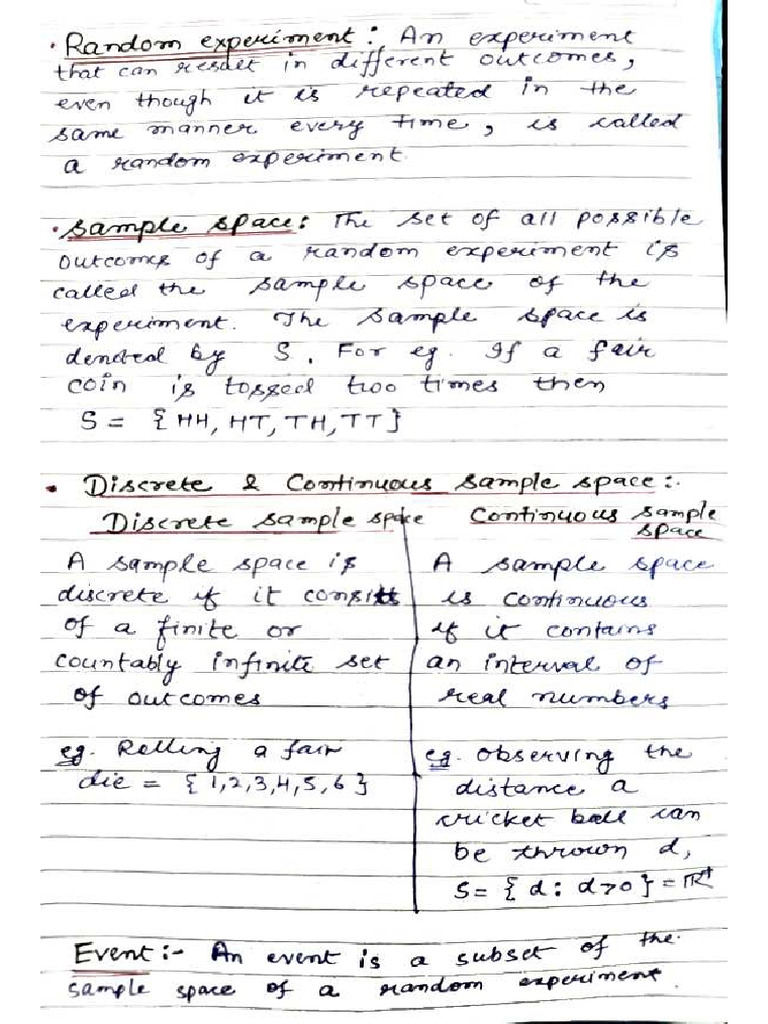 • Random experiment : An experiment
that can result in different outcomes,
even though it is repeated in the
same manner every time, is called
a random experiment.
• Sample space : The set of all possible
outcomes of a random experiment is
called the sample space of the
experiment. The sample space is
denoted by S. For eg. If a fair
coin is tossed two times then
S = {HH, HT, TH, TT}
• Discrete & Continuous sample space :.
Discrete sample space
A sample space is
discrete if it consists
of a finite or
countably infinite set
of outcomes
eg. Rolling a fair
die = {1,2,3,4,5,6}
Continuous sample
space
A sample space
is continuous
if it contains
an interval of
real numbers
eg. Observing the
distance a
cricket ball can
be thrown d,
S = {d : d>0} = R⁺
Event :- An event is a subset of the
sample space of a random experiment.